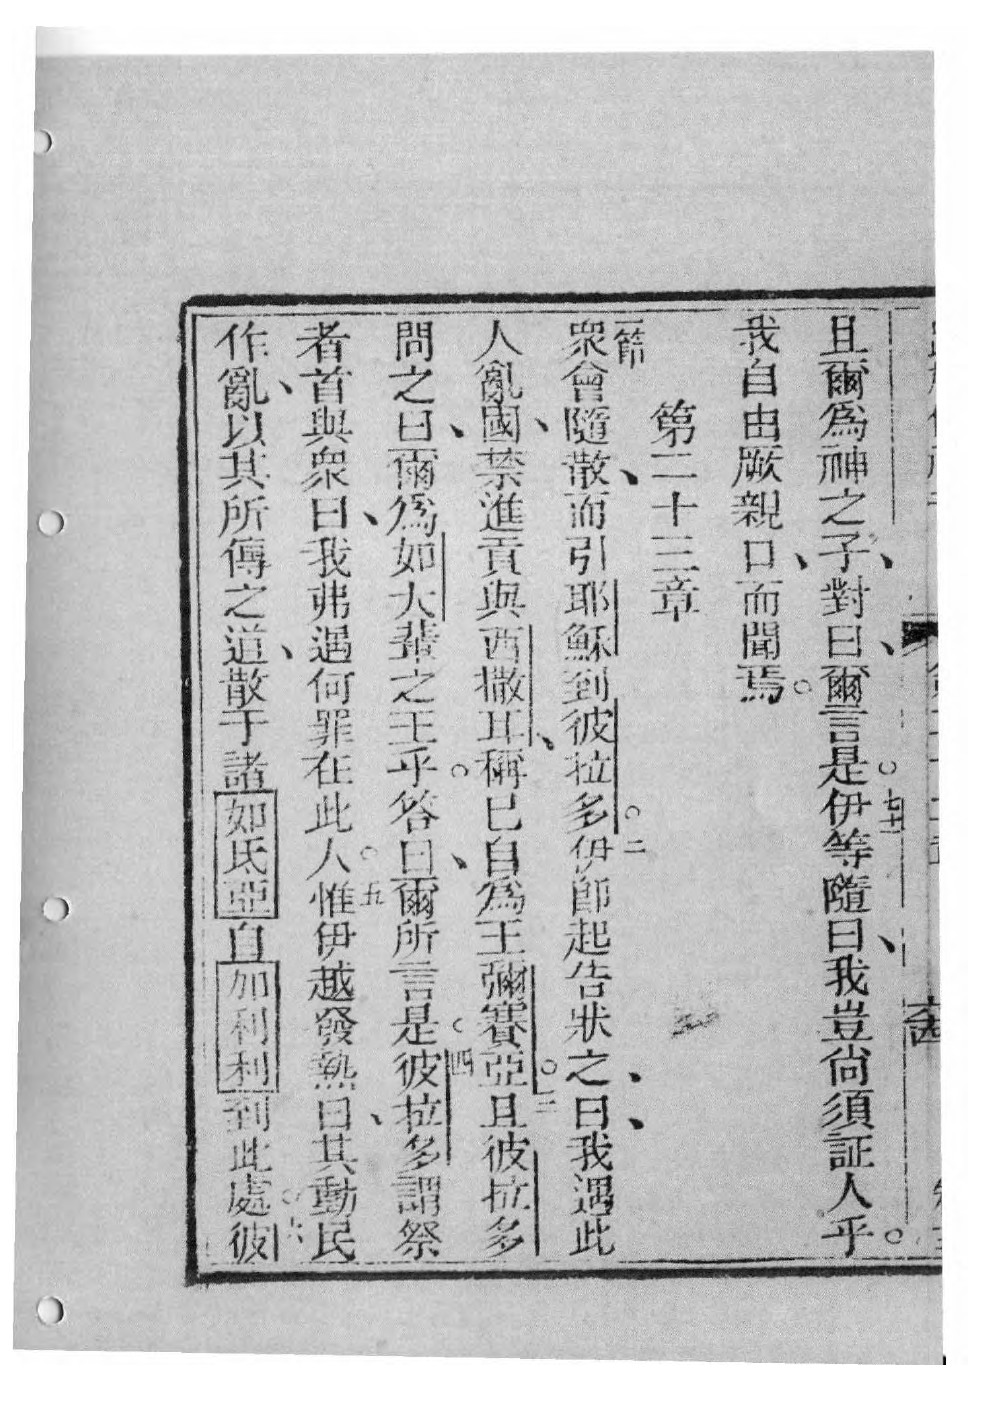 且爾為神之子、對曰、爾言是。七十一伊等隨曰、我豈尚須証人乎。
我自由厥親口、而聞焉。
第二十三章
一節衆會隨散、而引耶穌到彼拉多。二伊卽起告狀之、曰、我遇此
人亂國、禁進貢與西撒耳、稱已自為王彌賽亞。三且彼拉多
問之曰、爾為如大輩之王乎。答曰、爾所言是。四彼拉多謂祭
者首與衆曰、我弗遇何罪在此人。五惟伊越發熱曰、其動民
作亂、以其所傳之道、散于諸如氐亞自加利利到此處。六彼